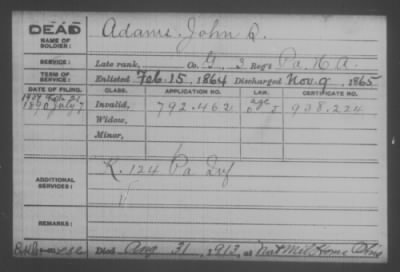 DEAD
NAME OF SOLDIER:
Adams, John Q.
SERVICE:
Late rank, Co. G, 3 Reg't Pa. H A.
TERM OF SERVICE:
Enlisted Feb. 15, 1864 Discharged Nov. 9, 1865
DATE OF FILING. CLASS. APPLICATION NO. LAW. CERTIFICATE NO.
1890 July 7 Invalid, 792.462 age 938.224
Widow,
Minor,
ADDITIONAL SERVICES:
K. 124 Pa Inf
REMARKS:
Died Aug 31, 1913, at Nat Mil Home Ohio